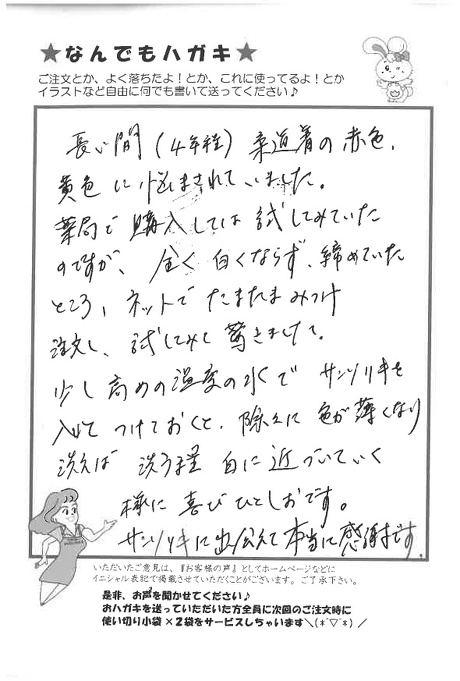 ★なんでもハガキ★
ご注文とか、よく落ちたよ！とか、これに使ってるよ！とか
イラストなど自由に何でも書いて送ってください♪
長い間(4年程)柔道着の赤色、
黄色に悩まされていました。
薬局で購入しては試してみていた
のですが、全く白くならず、締めていた
ところ、ネットでたまたまみつけ
注文し、試してみて驚きました。
少し高めの温度の水でサンソリキを
入れてつけておくと、除々に色が薄くなり
洗えば洗う程白に近づいていく
様に喜びひとしおです。
サンソリキに出会えて本当に感謝です。
いただいたご意見は、『お客様の声』としてホームページなどに
イニシャル表記で掲載させていただくことがございます。ご了承下さい。
是非、お声を聞かせてください♪
おハガキを送っていただいた方全員に次回のご注文時に
使い切り小袋×2袋をサービスしちゃいます＼(*ˊ▽ˋ*)／